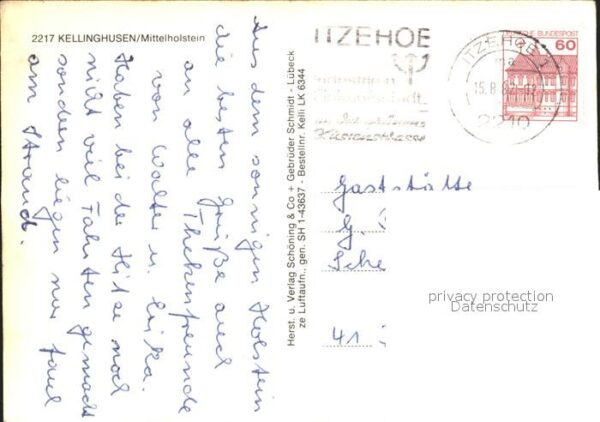 2217 KELLINGHUSEN/Mittelholstein
Aus dem sonnigen Holstein
die besten Grüße auch
an alle Thekenfreunde
von Walter u. Erika.
Haben bei der Hitze noch
nicht viel Fahrten gemacht
sondern liegen nur faul
am Strand.
Herst. u. Verlag Schöning & Co + Gebrüder Schmidt - Lübeck
ze Luftaufn., gen. SH 1-43637 - Bestellnr. Kelli LK 6344
ITZEHOE
ITZEHOE 1
ma
15.8.82
2210
DEUTSCHE BUNDESPOST
60
Gaststätte
G.
Sche
41
privacy protection
Datenschutz